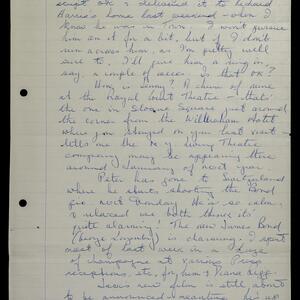 script OK & delivered it to Richard
Harris's home last weekend – when I
know he was in. Now I won't pursue
him on it for a bit, but if I don't
run across him, as I'm pretty well
sure to, I'll give him a ring in,
say, a couple of weeks. Is that OK?
How is Jimmy? A chum of mine
at the Royal Court Theatre – that's
the one in Sloane Square just around
the corner from the Willbraham Hotel
where you stayed on your last visit –
tells me the N.Y. Living Theatre
company may be appearing there
around January of next year.
Peter has gone to Switzerland
where he starts shooting the Bond
pic next Monday. He is so calm
& relaxed we both think it's
quite alarming! The new James Bond
(George Lazenby) is charming, & spent
most of last week in a haze
of champagne at various Press
receptions, etc. for him & Diana Rigg.
new film is still about
to be announced – meaning he's